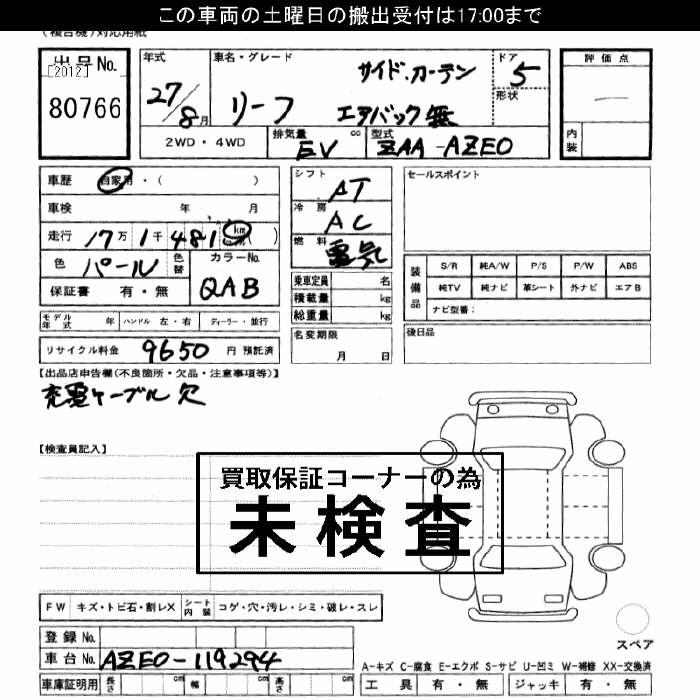 この車両の土曜日の搬出受付は17:00まで
(複合機)対応用紙
出品No.
[2012]
80766
年式
27/8月
車名・グレード
リーフ
サイド.カーテン
エアバック無
ドア
5
形状
評価点
内装
2WD・4WD
排気量
cc
EV
型式
ZAA-AZE0
車歴 自家用・( )
車検 年 月
走行 17万1千481km( )
色 パール
色替
カラーNo.
QAB
保証書 有・無
モデル年式 年 ハンドル 左・右 ディーラー・並行
リサイクル料金 9650 円 預託済
シフト
AT
冷房
AC
燃料
電気
乗車定員 名
積載量 kg
総重量 kg
名変期限
月 日
セールスポイント
装備品
S/R 純A/W P/S P/W ABS
純TV 純ナビ 革シート 外ナビ エアB
ナビ型番:
後日品
【出品店申告欄(不良箇所・欠品・注意事項等)】
充電ケーブル欠
【検査員記入】
買取保証コーナーの為
未検査
FW キズ・トビ石・割レX シート内装 コゲ・穴・汚レ・シミ・破レ・スレ
登録No.
車台No. AZE0-119294
車庫証明用 長さ cm 幅 cm 高さ cm
スペア
A-キズ C-腐食 E-エクボ S-サビ U-凹ミ W-補修 XX-交換済
工具 有・無 ジャッキ 有・無